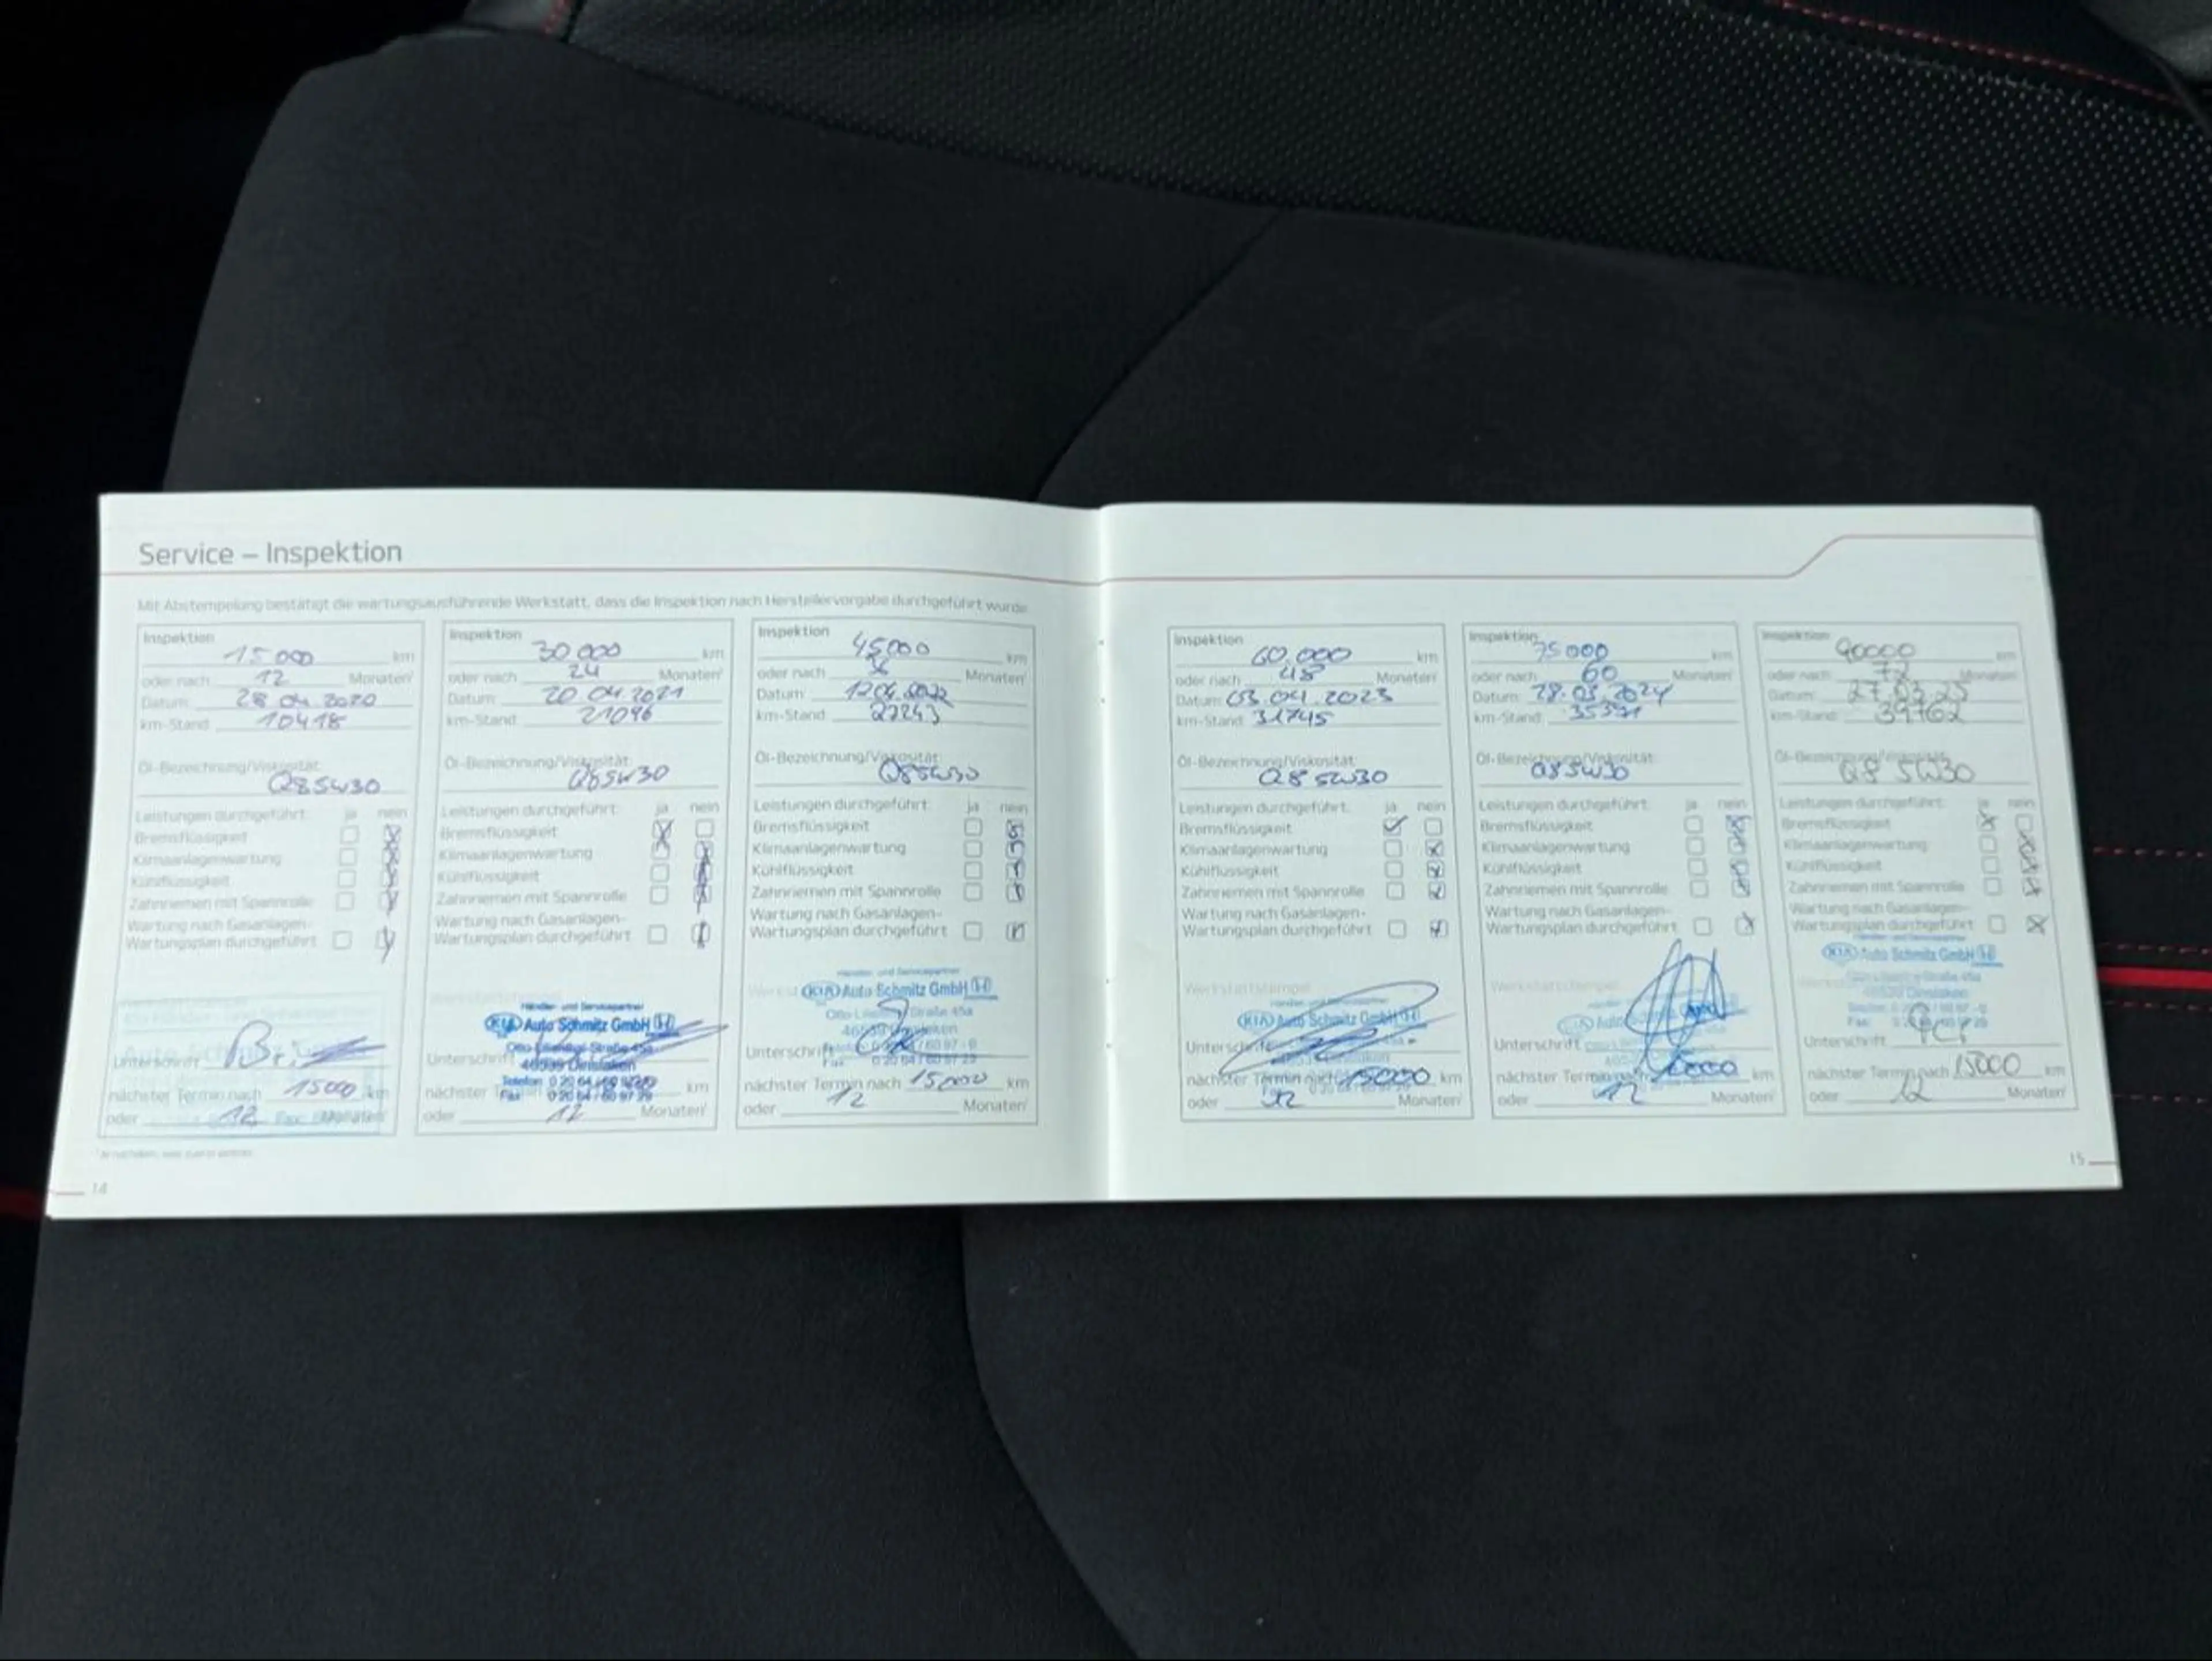 Service – Inspektion
Mit Abstempelung bestätigt die wartungsausführende Werkstatt, dass die Inspektion nach Herstellervorgabe durchgeführt wurde
Inspektion
15 000 km
oder nach 12 Monaten¹
Datum: 28 04 2020
km-Stand: 10418
Öl-Bezeichnung/Viskosität:
Q8 5W30
Leistungen durchgeführt: ja nein
Bremsflüssigkeit
Klimaanlagenwartung
Kühlflüssigkeit
Zahnriemen mit Spannrolle
Wartung nach Gasanlagen-
Wartungsplan durchgeführt
Unterschrift
nächster Termin nach 15000 km
oder 12 Monaten¹
14
Inspektion
30 000 km
oder nach 24 Monaten¹
Datum: 20 04 2021
km-Stand: 21096
Öl-Bezeichnung/Viskosität:
Q8 5W30
Leistungen durchgeführt: ja nein
Bremsflüssigkeit
Klimaanlagenwartung
Kühlflüssigkeit
Zahnriemen mit Spannrolle
Wartung nach Gasanlagen-
Wartungsplan durchgeführt
Händler- und Servicepartner
KIA Auto Schmitz GmbH
Otto-Lilienthal-Straße 45a
46539 Dinslaken
Unterschrift
Telefon
Fax 0 20 64 / 60 97 29
nächster km
oder 12 Monaten¹
Inspektion
45000 km
oder nach Monaten¹
Datum: 12 04 2022
km-Stand: 27243
Öl-Bezeichnung/Viskosität:
Q8 5W30
Leistungen durchgeführt: ja nein
Bremsflüssigkeit
Klimaanlagenwartung
Kühlflüssigkeit
Zahnriemen mit Spannrolle
Wartung nach Gasanlagen-
Wartungsplan durchgeführt
Händler- und Servicepartner
KIA Auto Schmitz GmbH
46539 Dinslaken
Unterschrift
nächster Termin nach 15000 km
oder 12 Monaten¹
Inspektion
60.000 km
oder nach 48 Monaten¹
Datum: 03.04.2023
km-Stand: 31745
Öl-Bezeichnung/Viskosität:
Q8 5W30
Leistungen durchgeführt: ja nein
Bremsflüssigkeit
Klimaanlagenwartung
Kühlflüssigkeit
Zahnriemen mit Spannrolle
Wartung nach Gasanlagen-
Wartungsplan durchgeführt
Werkstattstempel
KIA Auto Schmitz GmbH
Unterschrift
nächster Termin nach 15000 km
oder 12 Monaten¹
Inspektion
75000 km
oder nach 60 Monaten¹
Datum: 28.03.2024
km-Stand:
Öl-Bezeichnung/Viskosität:
Q8 5W30
Leistungen durchgeführt: ja nein
Bremsflüssigkeit
Klimaanlagenwartung
Kühlflüssigkeit
Zahnriemen mit Spannrolle
Wartung nach Gasanlagen-
Wartungsplan durchgeführt
Werkstattstempel
KIA Auto
Unterschrift
nächster Termin nach km
oder 12 Monaten¹
Inspektion
90000 km
oder nach 72 Monaten¹
Datum: 27.03.25
km-Stand: 39762
Öl-Bezeichnung/Viskosität:
Q8 5W30
Leistungen durchgeführt: ja nein
Bremsflüssigkeit
Klimaanlagenwartung
Kühlflüssigkeit
Zahnriemen mit Spannrolle
Wartung nach Gasanlagen-
Wartungsplan durchgeführt
KIA Auto Schmitz GmbH
46539 Dinslaken
Unterschrift
nächster Termin nach 15000 km
oder 12 Monaten¹
15